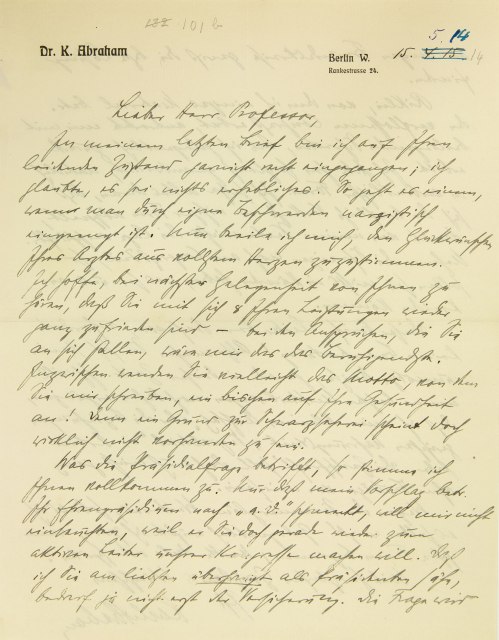 101 b
Dr. K. Abraham
Berlin W.
Rankestrasse 24.
15. 5. 14
Lieber Herr Professor,
In meinem letzten Brief bin ich auf Ihren
leidenden Zustand garnicht recht eingegangen; ich
glaubte, es sei nichts erhebliches. So geht es einem,
wenn man durch eigne Beschwerden narzistisch
eingeengt ist. Nun beeile ich mich, den Glückwünschen
Ihres Arztes aus vollstem Herzen zuzustimmen.
Ich hoffe, bei nächster Gelegenheit von Ihnen zu
hören, daß Sie mit sich & Ihren Leistungen wieder
ganz zufrieden sind — bei den Ansprüchen, die Sie
an sich stellen, wäre mir das das Beruhigendste.
Inzwischen wenden Sie vielleicht das Motto, von dem
Sie mir schreiben, ein bischen auf Ihre Gesundheit
an! Denn ein Grund zur Schwarzseherei scheint doch
wirklich nicht vorhanden zu sein.
Was die Präsidialfrage betrifft, so stimme ich
Ihnen vollkommen zu. Nur daß mein Vorschlag betr.
Ihr Ehrenpräsidium nach „a. D." schmeckt, will mir nicht
einleuchten, weil er Sie doch gerade wieder zum
aktiven Leiter unsrer Kongresse machen will. Daß
ich Sie am liebsten überhaupt als Präsidenten sähe,
bedarf ja nicht erst der Versicherung. Die Frage wird